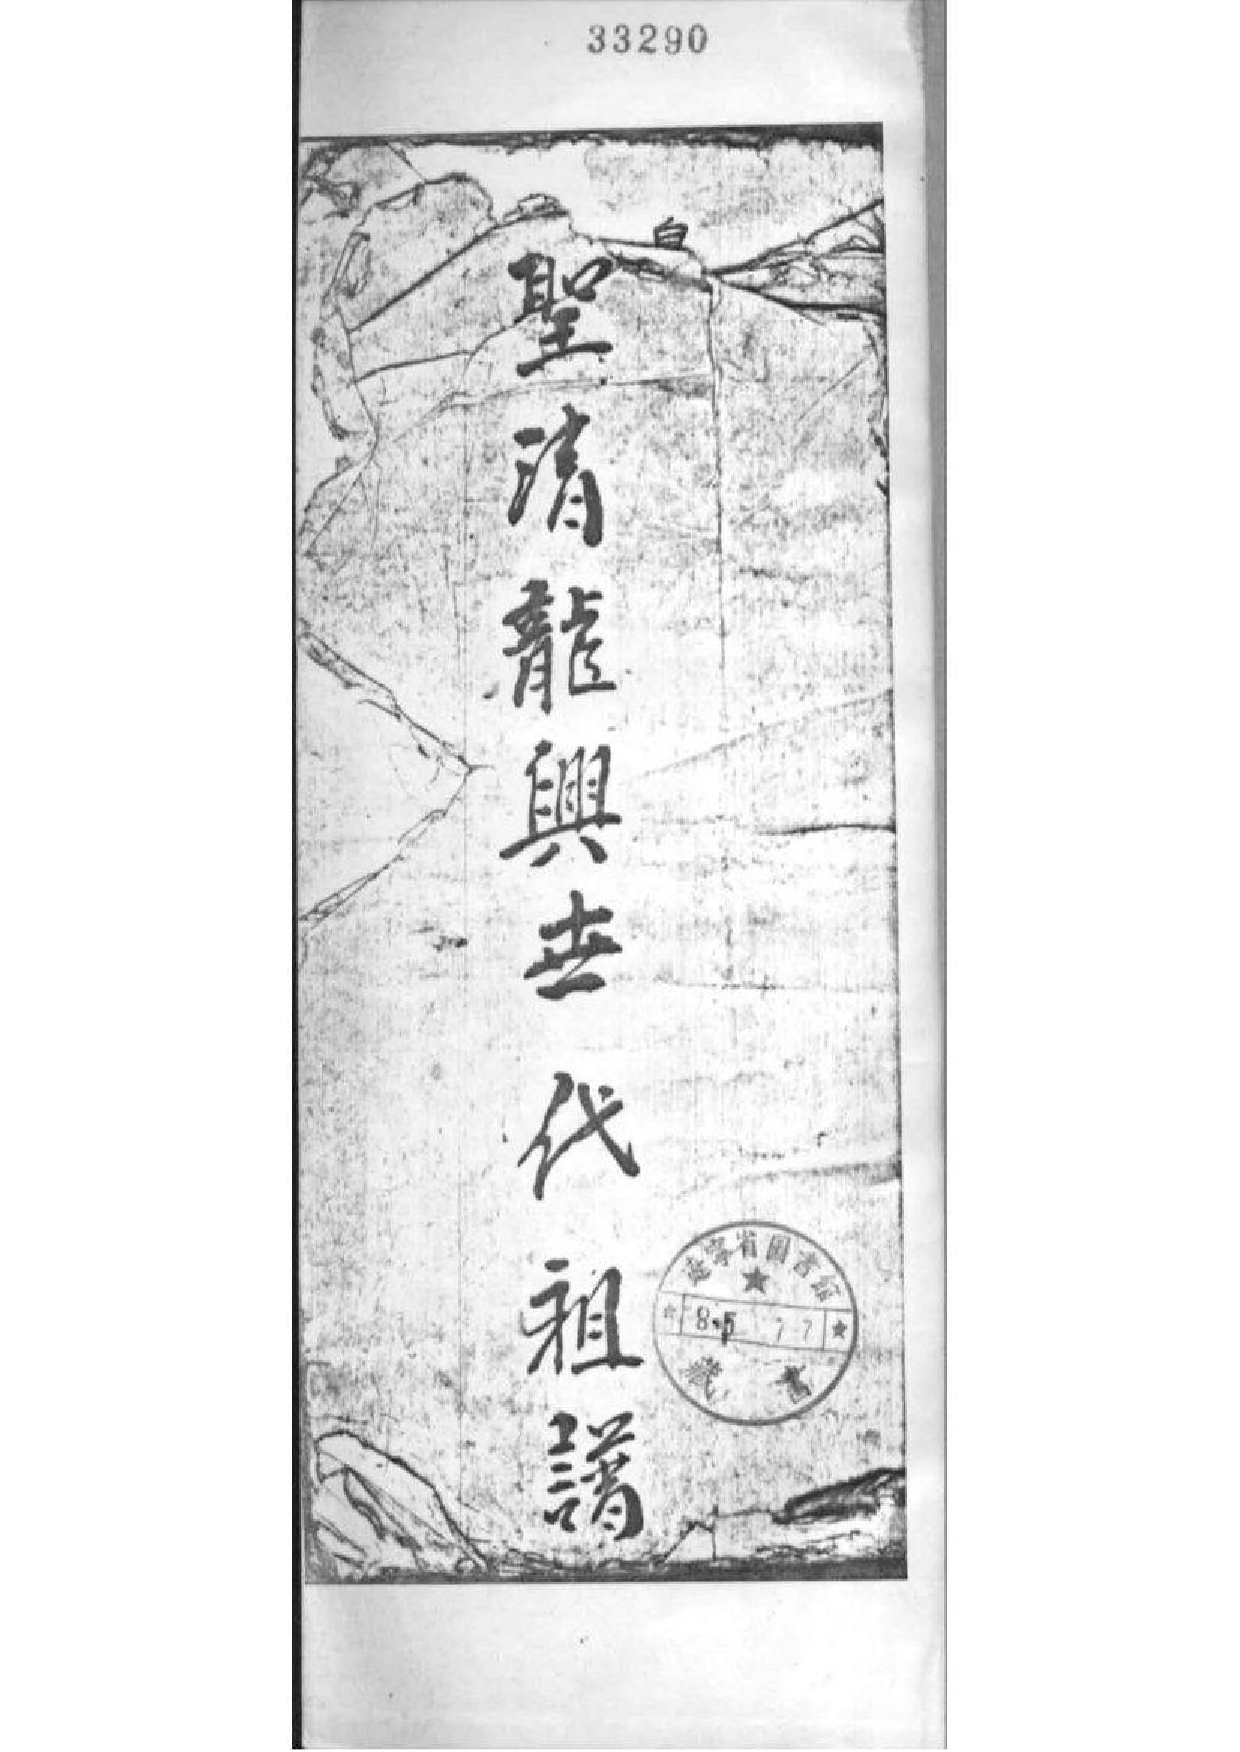 33290
皇
聖清龍興世代祖譜
遼寧省圖書館
8.5 7.7
舊藏